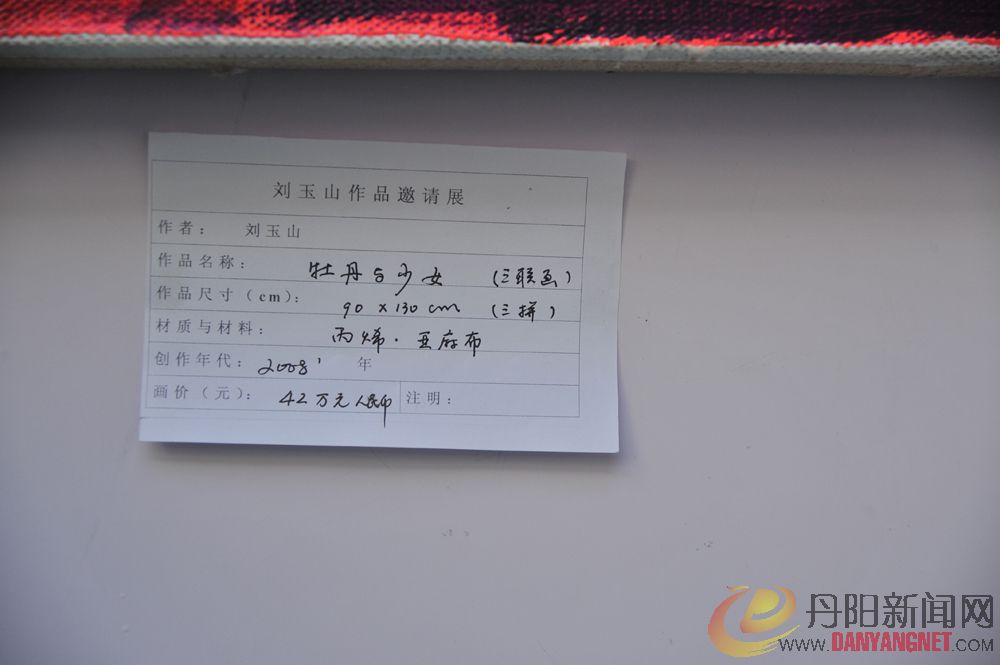 刘玉山作品邀请展
作者： 刘玉山
作品名称： 牡丹与少女 （三联画）
作品尺寸（cm）： 90 x 130 cm （三拼）
材质与材料： 丙烯．亚麻布
创作年代： 2008' 年
画价（元）： 42万元人民币 注明：
丹阳新闻网
www.DANYANGNET.com